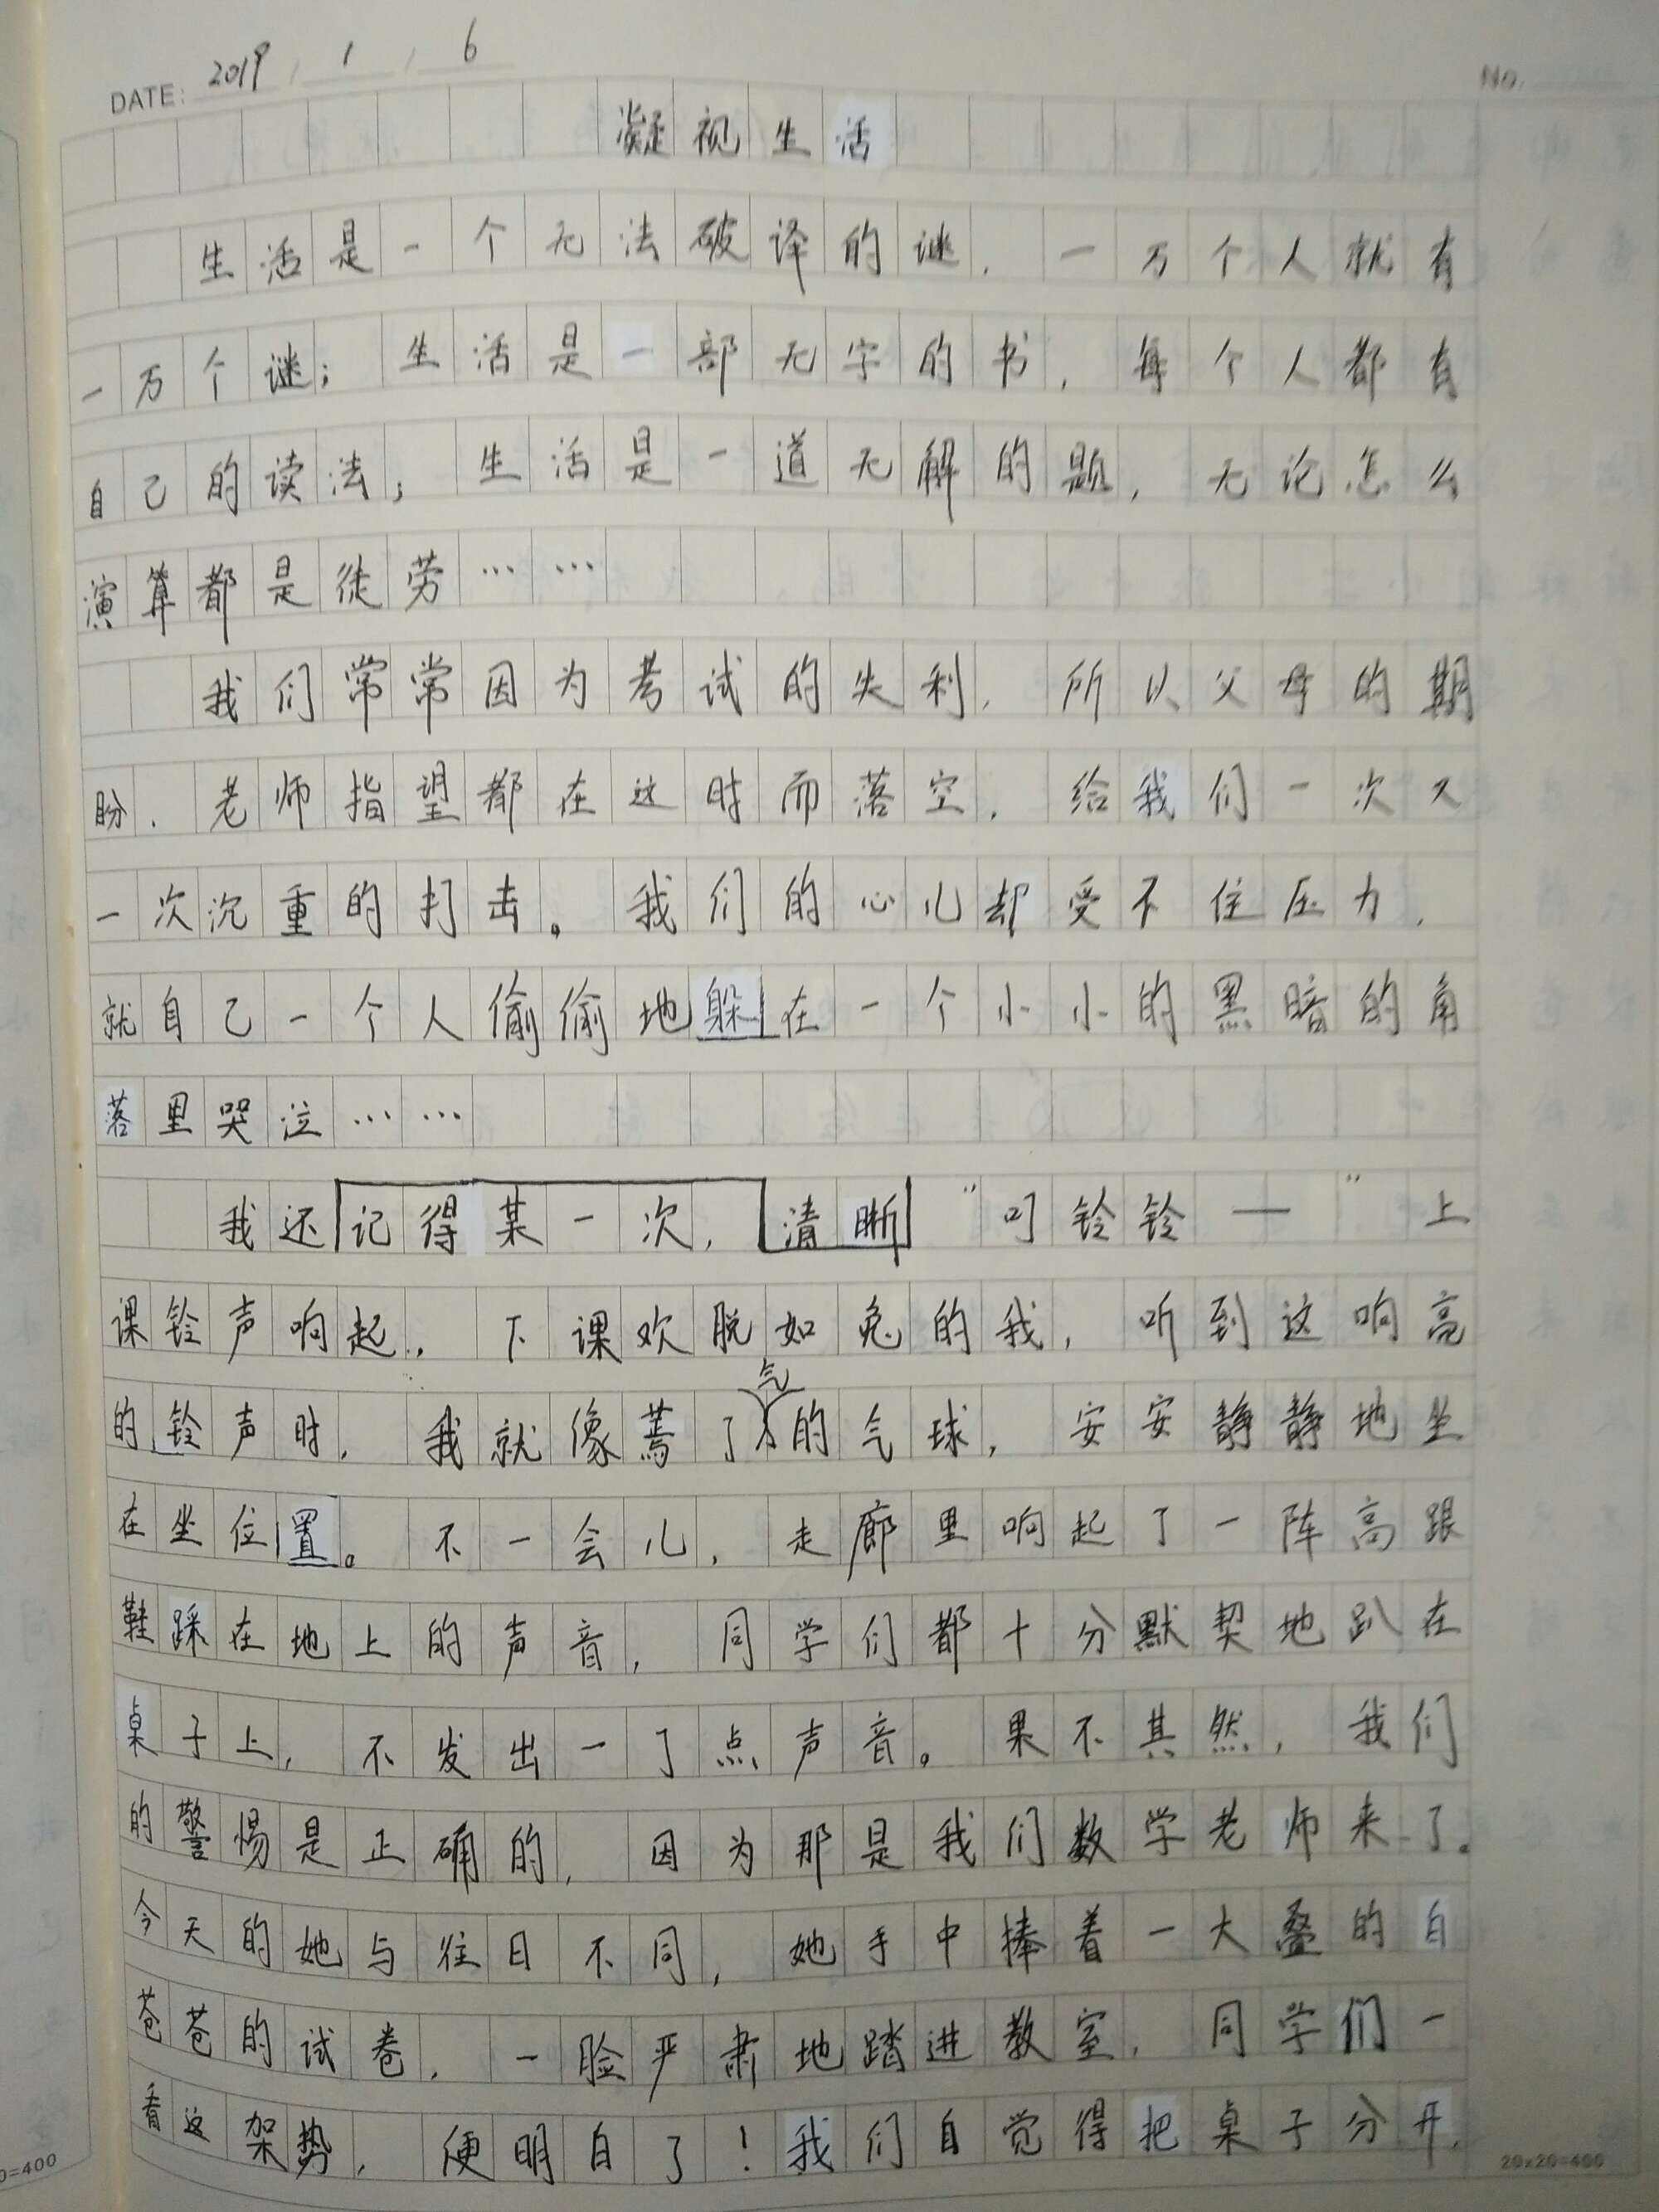 DATE: 2019 / 1 / 6
No.
凝视生活
生活是一个无法破译的谜，一万个人就有
一万个谜；生活是一部无字的书，每个人都有
自己的读法；生活是一道无解的题，无论怎么
演算都是徒劳……
我们常常因为考试的失利，所以父母的期
盼，老师指望都在这时而落空，给我们一次又
一次沉重的打击。我们的心儿却受不住压力，
就自己一个人偷偷地躲在一个小小的黑暗的角
落里哭泣……
我还记得某一次，清晰“叮铃铃——”上
课铃声响起，下课欢脱如兔的我，听到这响亮
的铃声时，我就像蔫了气的气球，安安静静地坐
在坐位置。不一会儿，走廊里响起了一阵高跟
鞋踩在地上的声音，同学们都十分默契地趴在
桌子上，不发出一丁点声音。果不其然，我们
的警惕是正确的，因为那是我们数学老师来了。
今天的她与往日不同，她手中捧着一大叠的白
苍苍的试卷，一脸严肃地踏进教室，同学们一
看这架势，便明白了！我们自觉得把桌子分开，
0=400
20×20=400